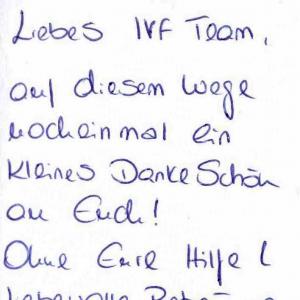 Liebes IVF Team,
auf diesem Wege
noch einmal ein
kleines DankeSchön
an Euch!
Ohne Eure Hilfe (